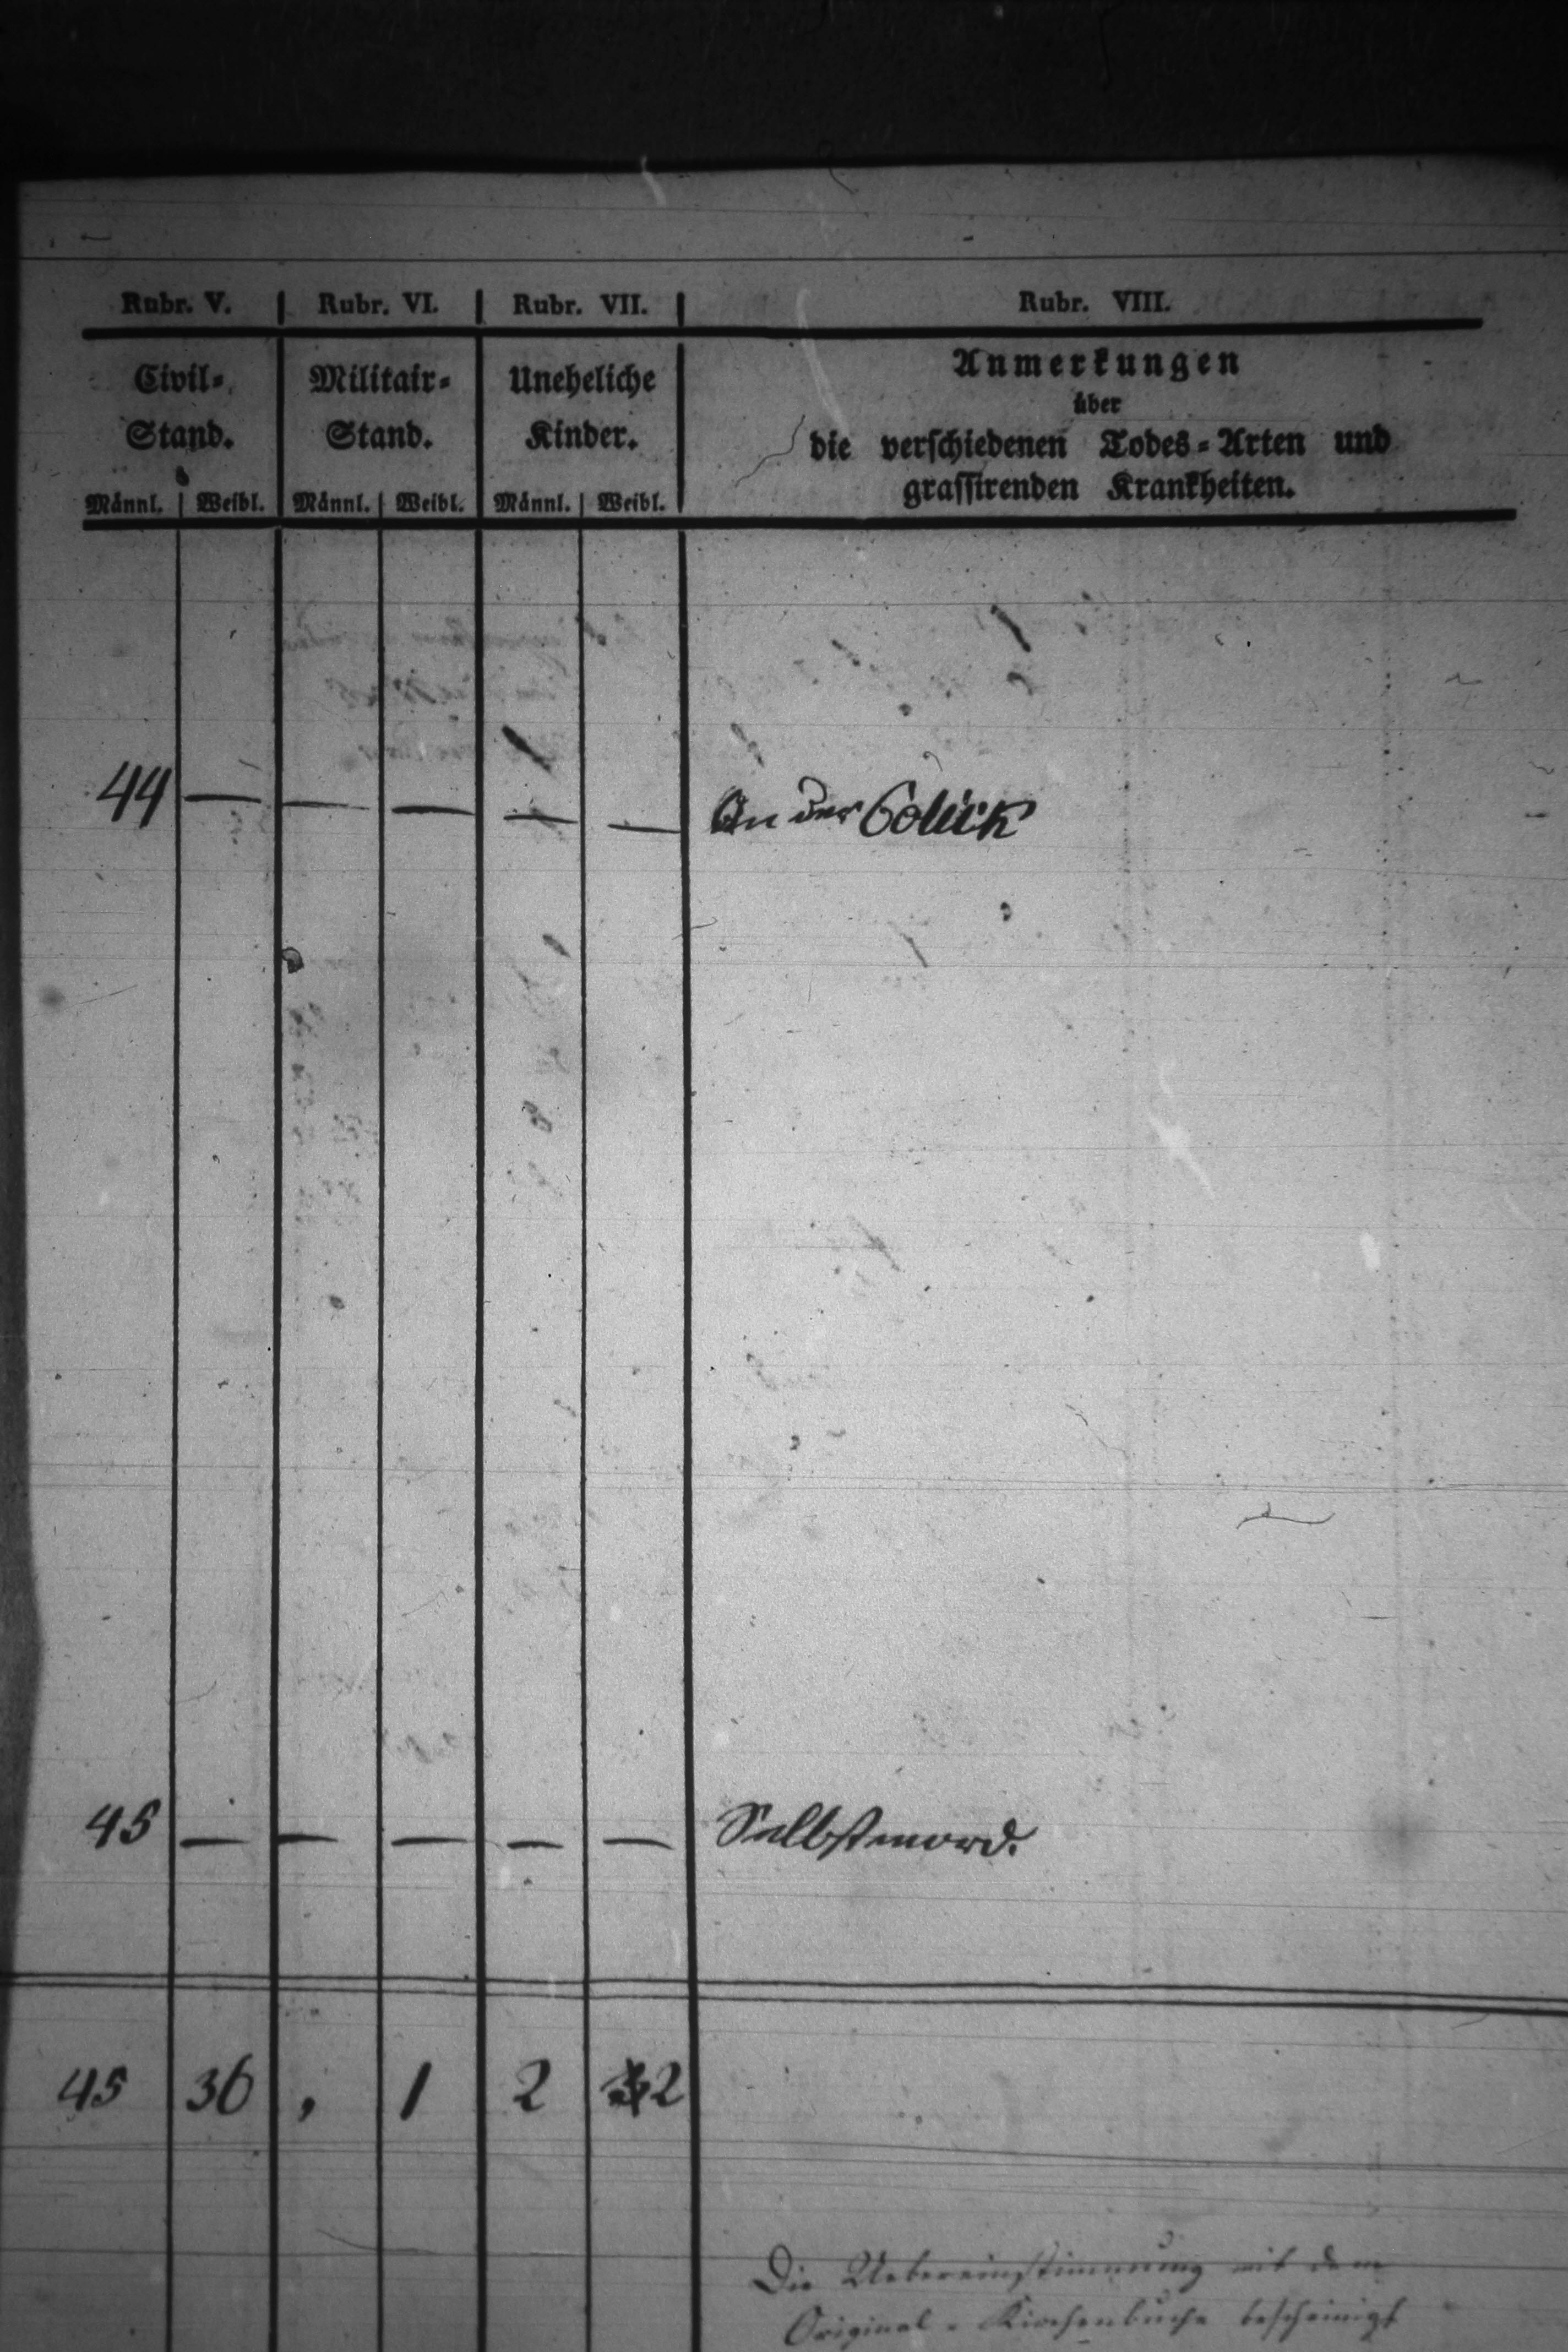 Rubr. V. Rubr. VI. Rubr. VII. Rubr. VIII.
Civil- Militair- Uneheliche Anmerkungen
Stand. Stand. Kinder. über
die verschiedenen Todes-Arten und
Männl. Weibl. Männl. Weibl. Männl. Weibl. grassirenden Krankheiten.
44 — — — — — An der Colick
45 — — — — — Selbstmord.
45 36 , 1 2 2
Die Uebereinstimmung mit dem
Original-Kirchenbuche bescheinigt